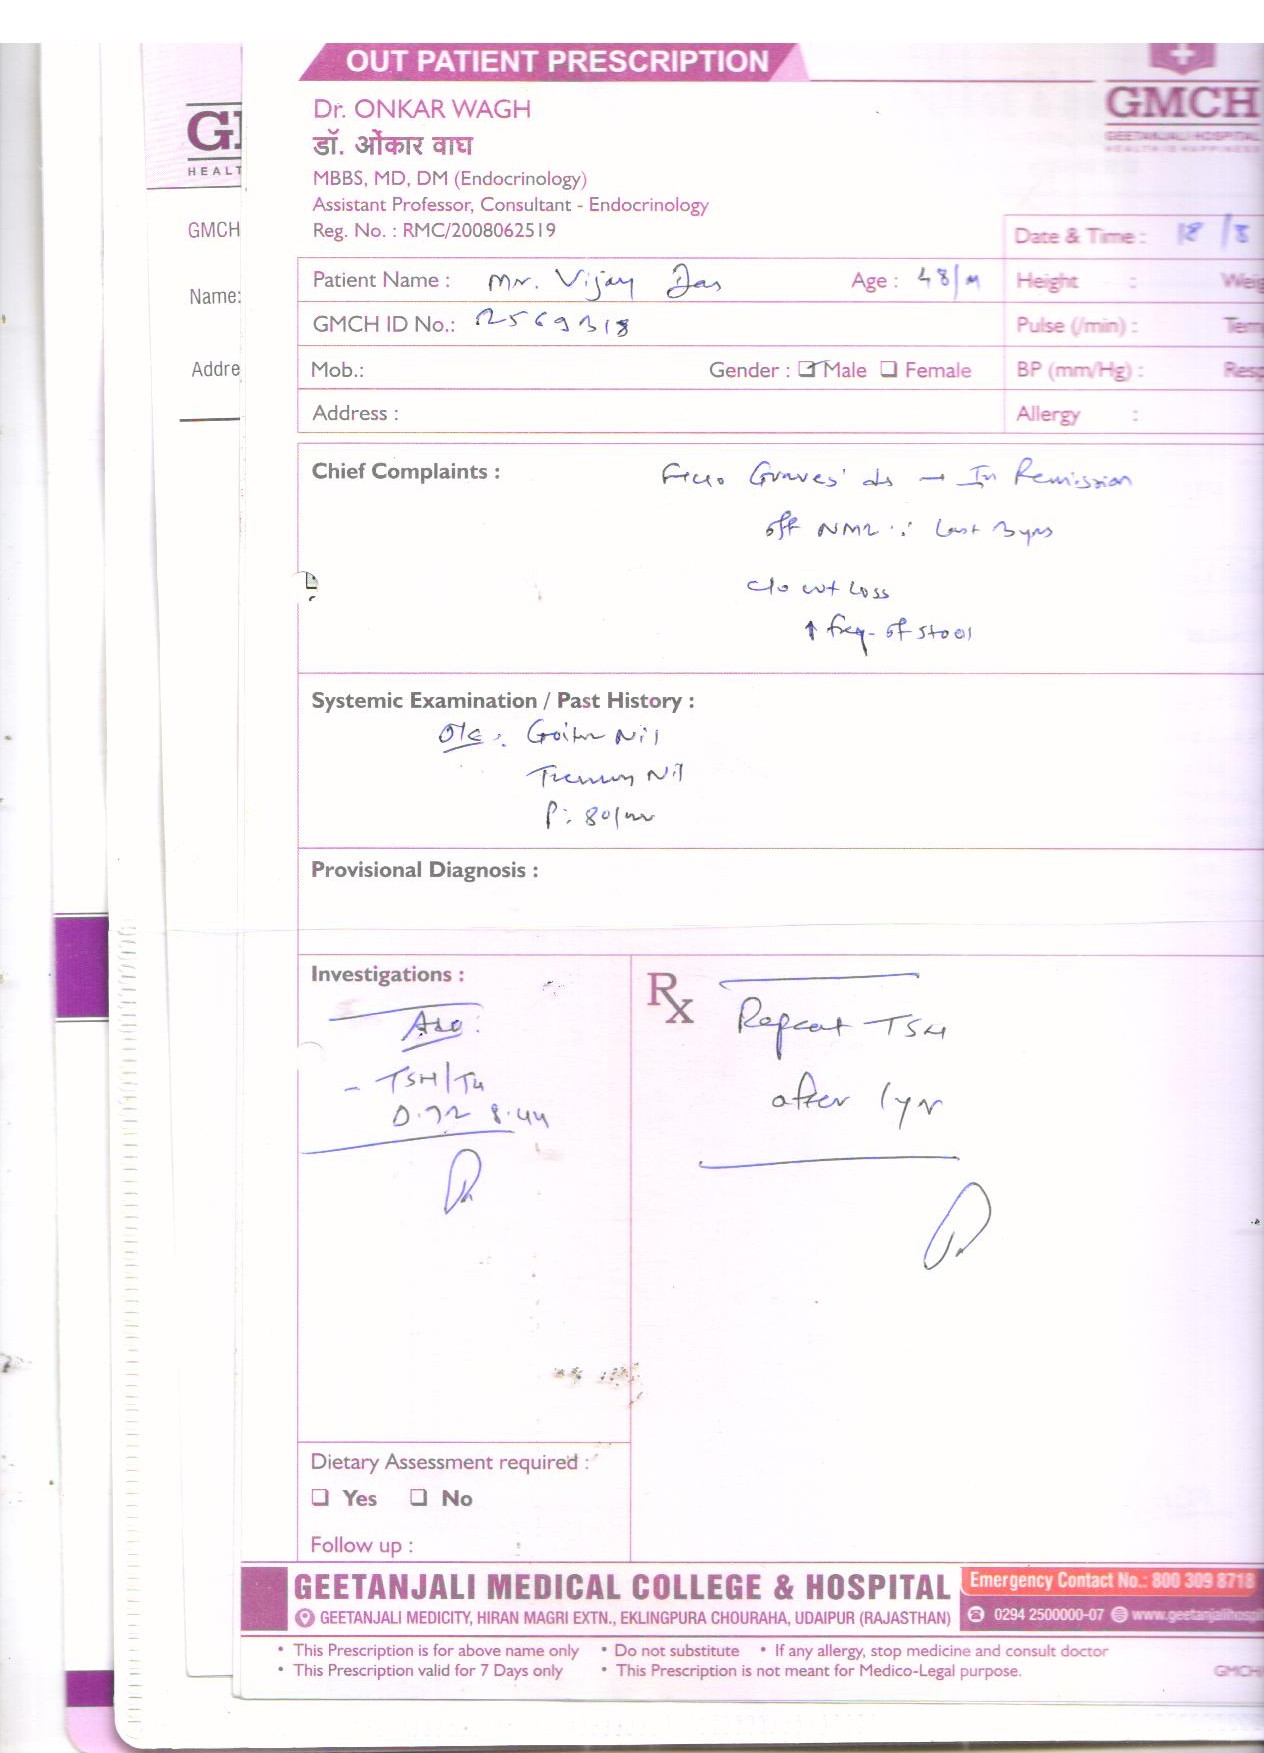 OUT PATIENT PRESCRIPTION
GMCH
GEETANJALI HOSPITAL
HEALTH IS HAPPINESS
Dr. ONKAR WAGH
डॉ. ओंकार वाघ
MBBS, MD, DM (Endocrinology)
Assistant Professor, Consultant - Endocrinology
Reg. No. : RMC/2008062519
HEALT
GMCH
Name:
Addre
Date & Time : 18/8
Patient Name : Mr. Vijay Das Age : 48/M Height : Weig
GMCH ID No.: Pulse (/min) : Tem
Mob.: Gender : Male Female BP (mm/Hg) : Resp
Address : Allergy :
Chief Complaints : Graves' ds → In Remission
off NMZ ∵ Last 3 yrs
c/o wt loss
↑ freq. of stool
Systemic Examination / Past History :
O/E : Goiter Nil
Tremors Nil
P: 80/m
Provisional Diagnosis :
Investigations :
Adv :
- TSH/T4
0.72 8.44
Rx Repeat TSH
after 1 yr
Dietary Assessment required :
Yes No
Follow up :
GEETANJALI MEDICAL COLLEGE & HOSPITAL
GEETANJALI MEDICITY, HIRAN MAGRI EXTN., EKLINGPURA CHOURAHA, UDAIPUR (RAJASTHAN)
Emergency Contact No.: 800 309 8718
0294 2500000-07 www.geetanjalihospi
• This Prescription is for above name only • Do not substitute • If any allergy, stop medicine and consult doctor
• This Prescription valid for 7 Days only • This Prescription is not meant for Medico-Legal purpose.
GMCH